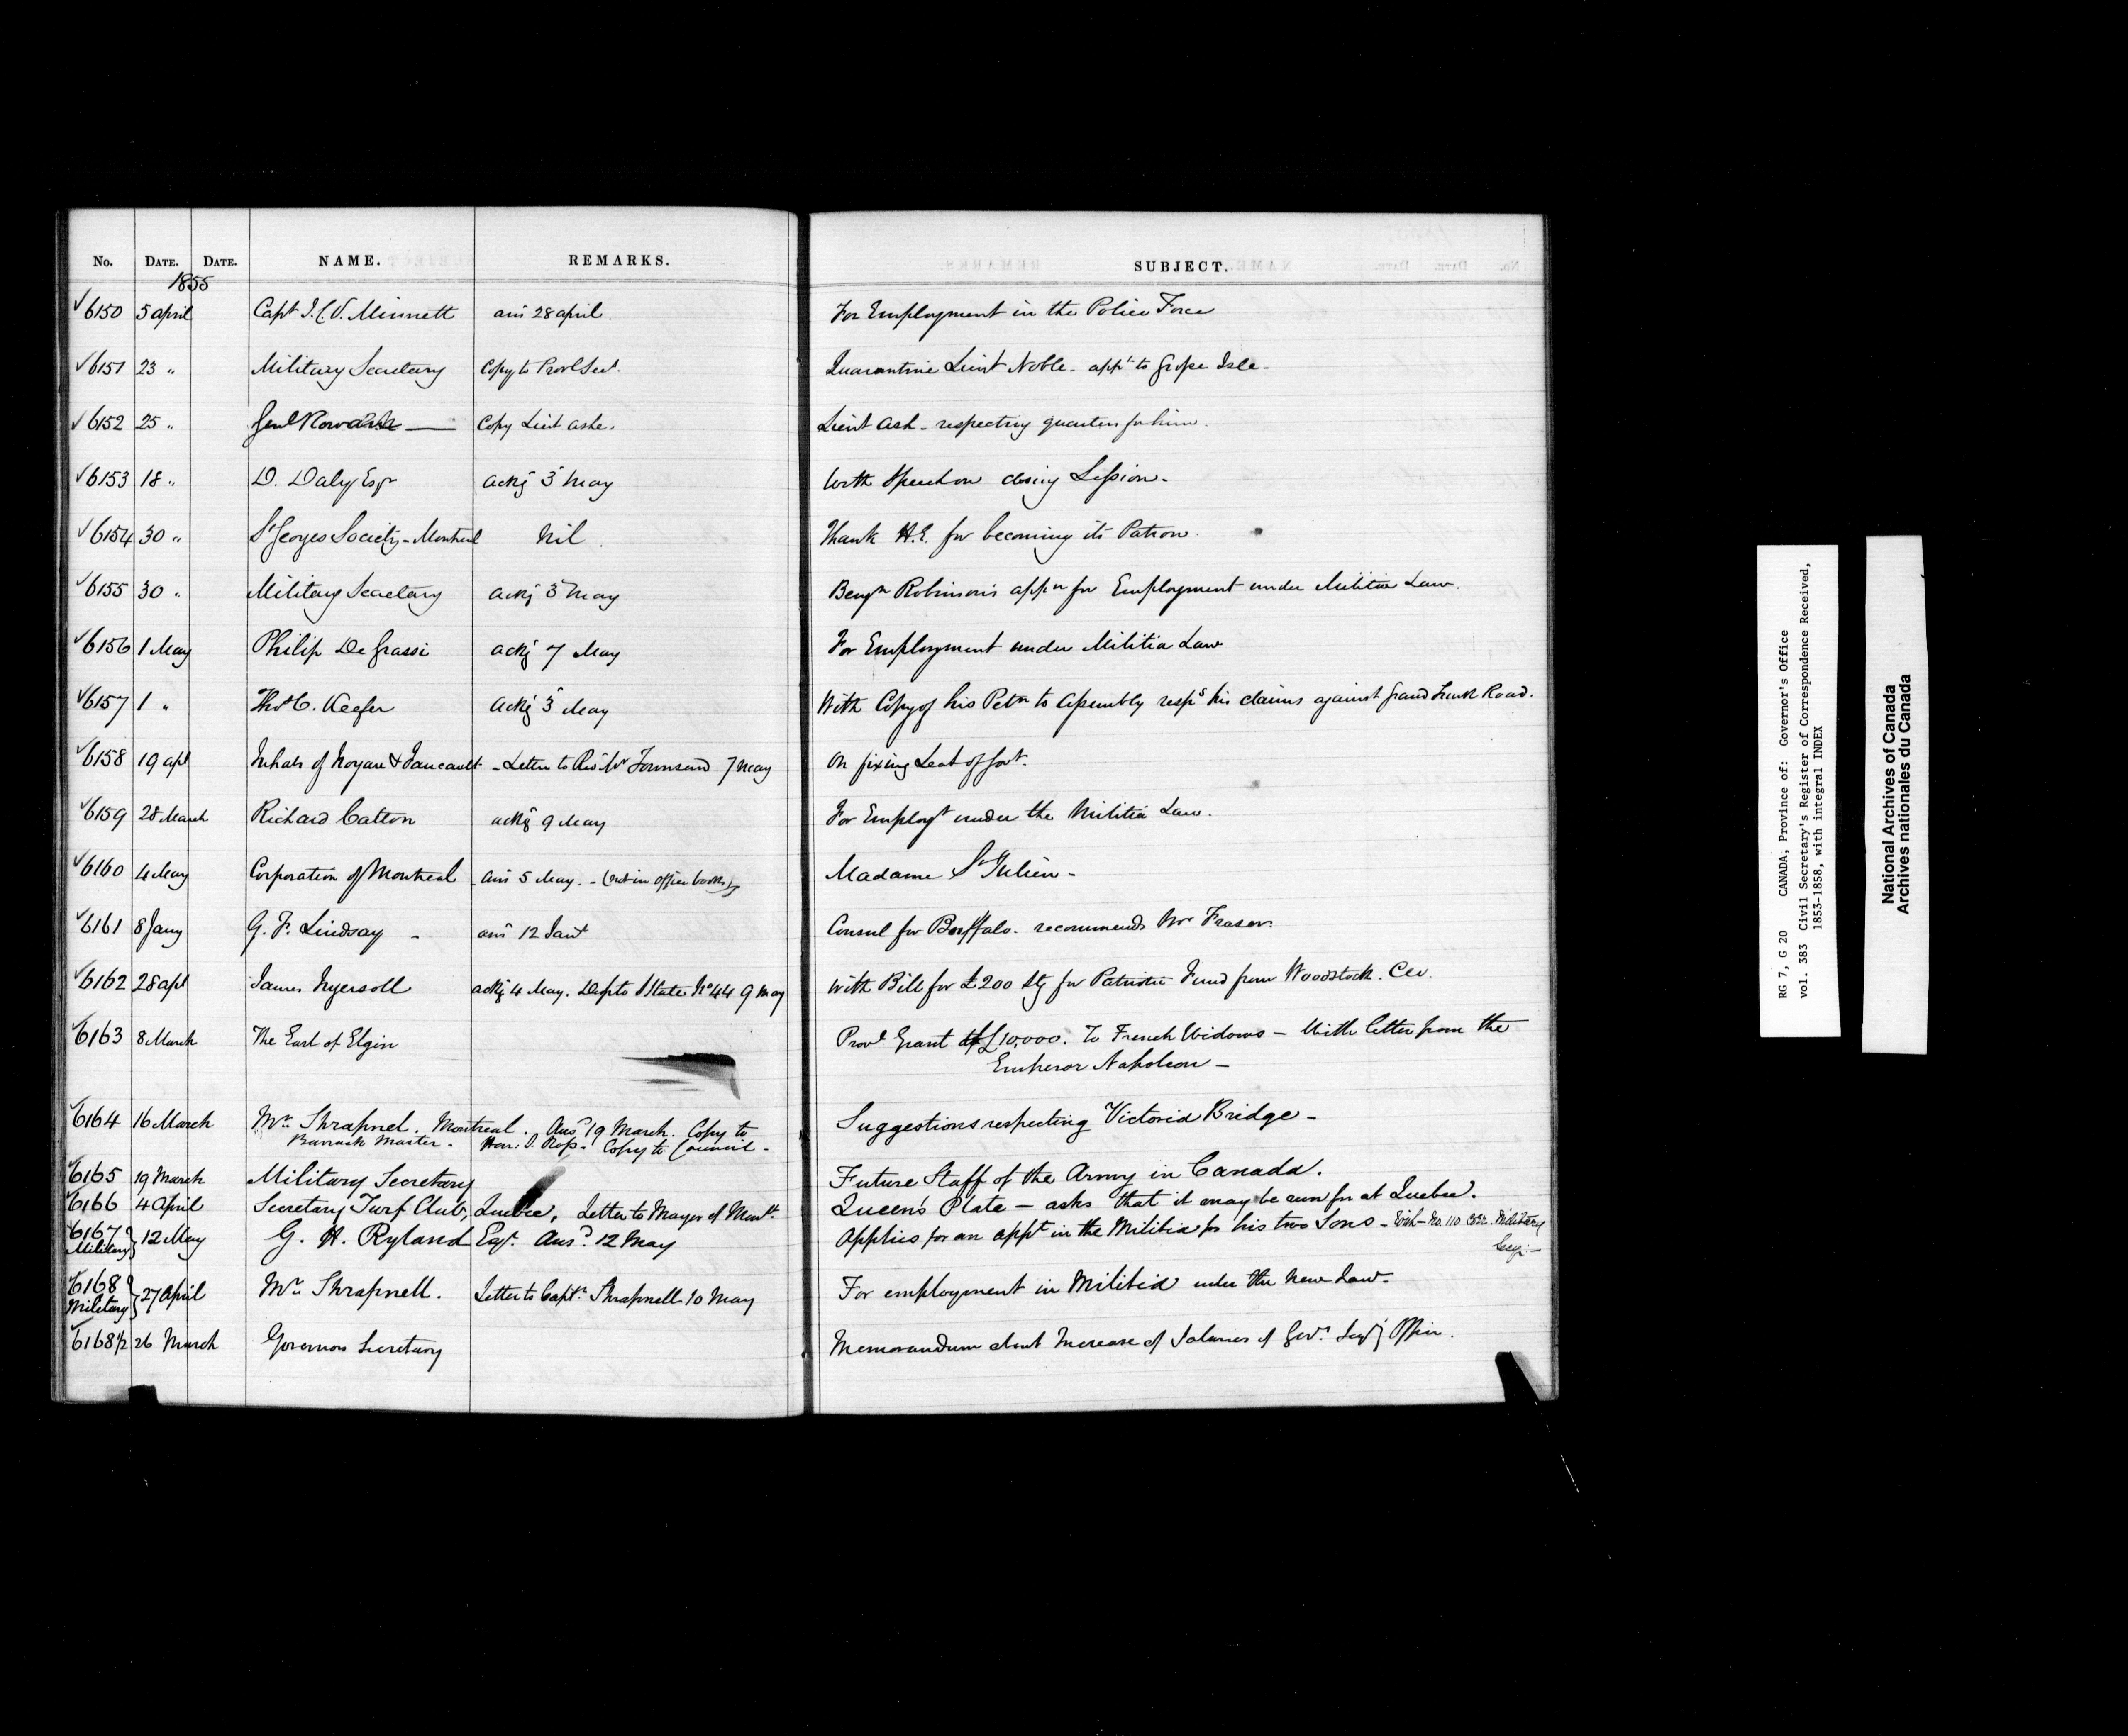 No. DATE. DATE. NAME. REMARKS. SUBJECT.
1855
6150 5 april Capt J. C. V. Minnett ans 28 april. For Employment in the Police Force
6151 23 " Military Secretary Copy to Provl Sec. Quarantine Lieut Noble - appt to Grosse Isle -
6152 25 " Genl Rowan Copy Lieut Ashe. Lieut Ash - respecting quarters for him.
6153 18 " D. Daly Esqr ackg 3 May With Speech on closing Session -
6154 30 " St Georges Society - Montreal Nil. Thank H.E. for becoming its Patron.
6155 30 " Military Secretary ackg 3 May Benjn Robinson's appn for Employment under Militia Law.
6156 1 May Philip De Grassi ackg 7 May For Employment under Militia Law
6157 1 " Thos C. Keefer ackg 3 May With Copy of his Petn to Assembly respg his claims against Grand Trunk Road.
6158 19 apl Inhabs of Noyan & Foucault - Letter to Revd Mr Townsend 7 May On fixing Seat of Govt.
6159 28 March Richard Catton ackg 9 May For Employt under the Militia Law.
6160 4 May Corporation of Montreal ans 5 May. - (not in office books) Madame St Julien -
6161 8 Jany G. F. Lindsay - ans 12 Consul for Buffalo - recommends Mr Fraser.
6162 28 apl James Ingersoll ackg 4 May. Desp to S State No 44 9 May With Bill for £200 Stg for Patriotic Fund from Woodstock. CW.
6163 8 March The Earl of Elgin Provl Grant of £10,000. To French Widows - With letter from the
Emperor Napoleon -
6164 16 March Mr. Shrapnel. Montreal. Ansd 19 March. Copy to Suggestions respecting Victoria Bridge -
Barrack Master - Hon: J. Ross. Copy to Council -
6165 19 March Military Secretary Future Staff of the Army in Canada.
6166 4 April Secretary Turf Club, Quebec, Letter to Mayor of Montl. Queen's Plate - asks that it may be run for at Quebec.
6167 Military } 12 May G. H. Ryland Esqr. Ansd 12 May Applies for an appt in the Militia for his two Sons - With - No. 110 Military
6168 Military } 27 April Mr. Shrapnell. Letter to Captn Shrapnell 10 May For employment in Militia under the new Law -
6168 1/2 26 March Governors Secretary Memorandum about Increase of Salaries of Govr. Secy's Office.
RG 7, G 20 CANADA, Province of: Governor's Office
vol. 383 Civil Secretary's Register of Correspondence Received,
1853-1858, with integral INDEX
National Archives of Canada
Archives nationales du Canada